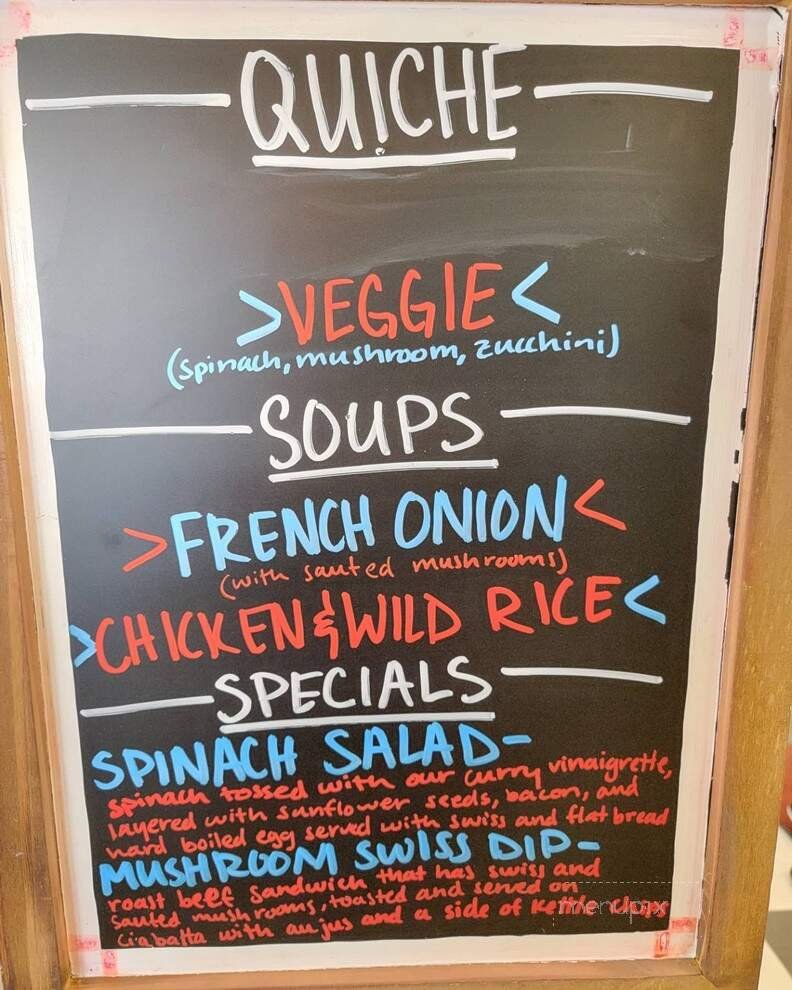 QUICHE
>VEGGIE<
(spinach, mushroom, zucchini)
SOUPS
>FRENCH ONION<
(with sauted mushrooms)
>CHICKEN & WILD RICE<
SPECIALS
SPINACH SALAD-
spinach tossed with our curry vinaigrette,
layered with sunflower seeds, bacon, and
hard boiled egg served with swiss and flat bread
MUSHROOM SWISS DIP-
roast beef sandwich that has swiss and
sauted mushrooms, toasted and served on
ciabatta with au jus and a side of Kettle chips
menupix